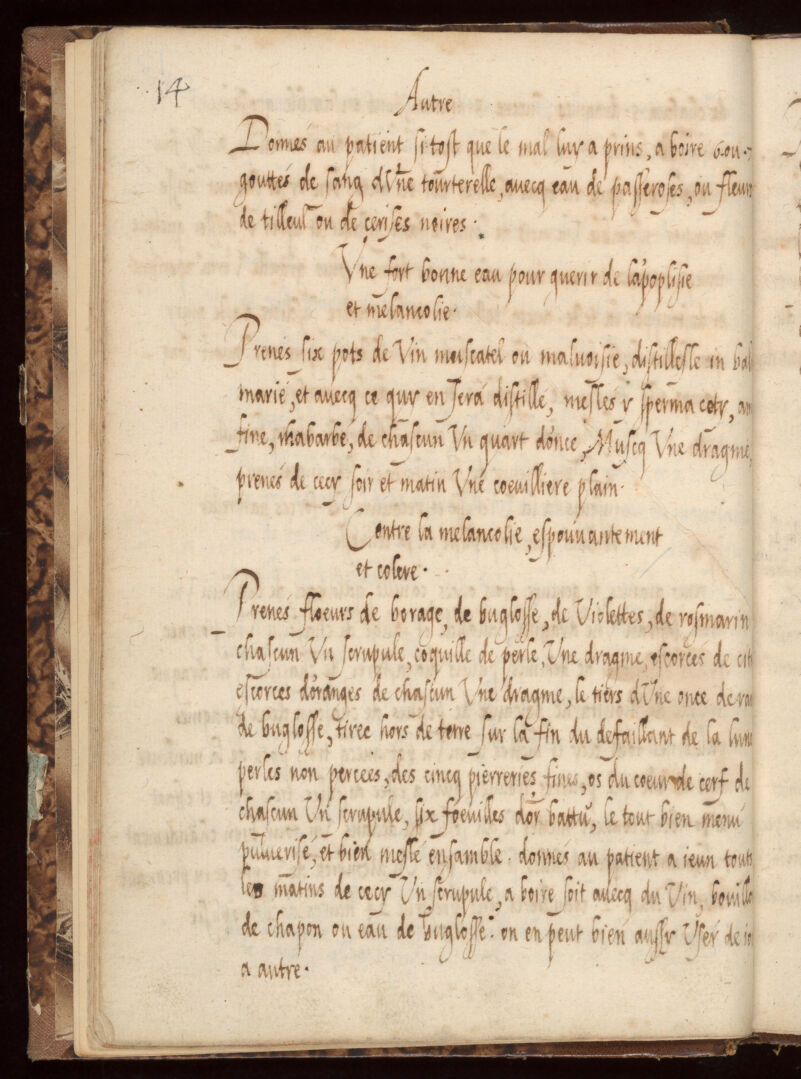 14
Autre
Donnes au patient si tost que le mal luy a prins, a boire 6 ou 7
gouttes de sang d'Vne tourterelle, auecq eau de passeroses, ou fleurs
de tilleul ou de cerises noires.
Vne fort bonne eau pour querir de lapoplisie
et melancolie.
Prenes six pots de Vin muscatel ou maluoisie, distillesle in bal
marie, et auecq ce quy en sera distille, mesles y sperma cety, am
fine, rhabarbe, de chascun Vn quart donce, Muscq Vne dragme,
prenes de cecy soir et matin Vne coeuilliere plain.
Contre la melancolie, espouuantement
et colere.
Prenes floeurs de borage, de buglosse, de Violettes, de rosmarin
chascun Vn scrupule, coquille de perle, Vne dragme, escorces de cit
escorces d'oranges de chascun Vne dragme, le tiers d'Vne once de ra
de buglosse, tiree hors de terre sur la fin du defaillant de la lune
perles non percees, des cincq pierreries fines, os du coeur de cerf de
chascun Vn scrupule, six foeuilles d'or battu, le tout bien menu
puluerise, et bien mesle ensamble. donnes au patient a ieun touts
les matins de cecy Vn scrupule, a boire soit auecq du Vin, bouillo
de chapon ou eau de buglosse. on en peut bien aussy Vser de io
a autre.